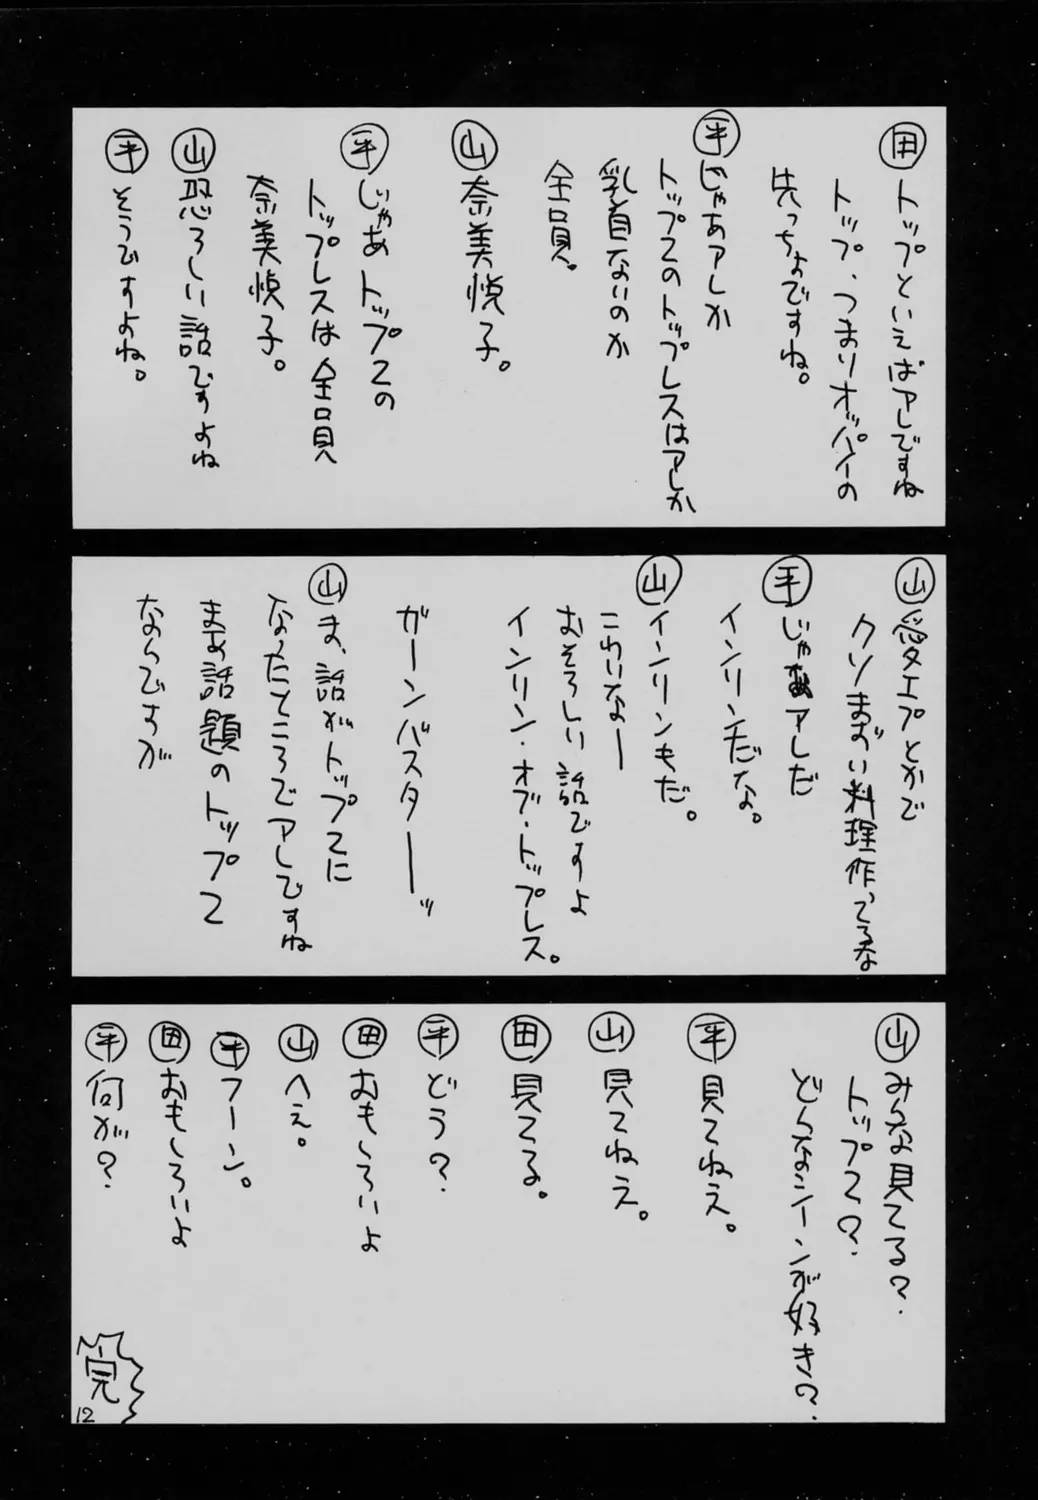 田 トップといえばアレですね
トップ、つまりオッパイの
先っちょですね。
平 じゃあアレか
トップ2のトップレスはアレか
乳首ないのか
全員。
山 奈美悦子。
平 じゃあトップ2の
トップレスは全員
奈美悦子。
山 恐ろしい話ですよね
平 そうですよね。
山 愛エプとかで
クソまずい料理作ってるな
平 じゃあアレだ
インリンだな。
山 インリンもだ。
こわいなー
おそろしい話ですよ
インリン・オブ・トップレス。
ガーンバスターーッ
山 ま、話がトップ2に
なったところでアレですね
まあ話題のトップ2
ならですが
山 みんな見てる?
トップ2?
どんなシーンが好き?
平 見てねえ。
山 見てねえ。
田 見てる。
平 どう?
田 おもしろいよ
山 へぇ。
平 フーン。
田 おもしろいよ
平 何が?
完
12